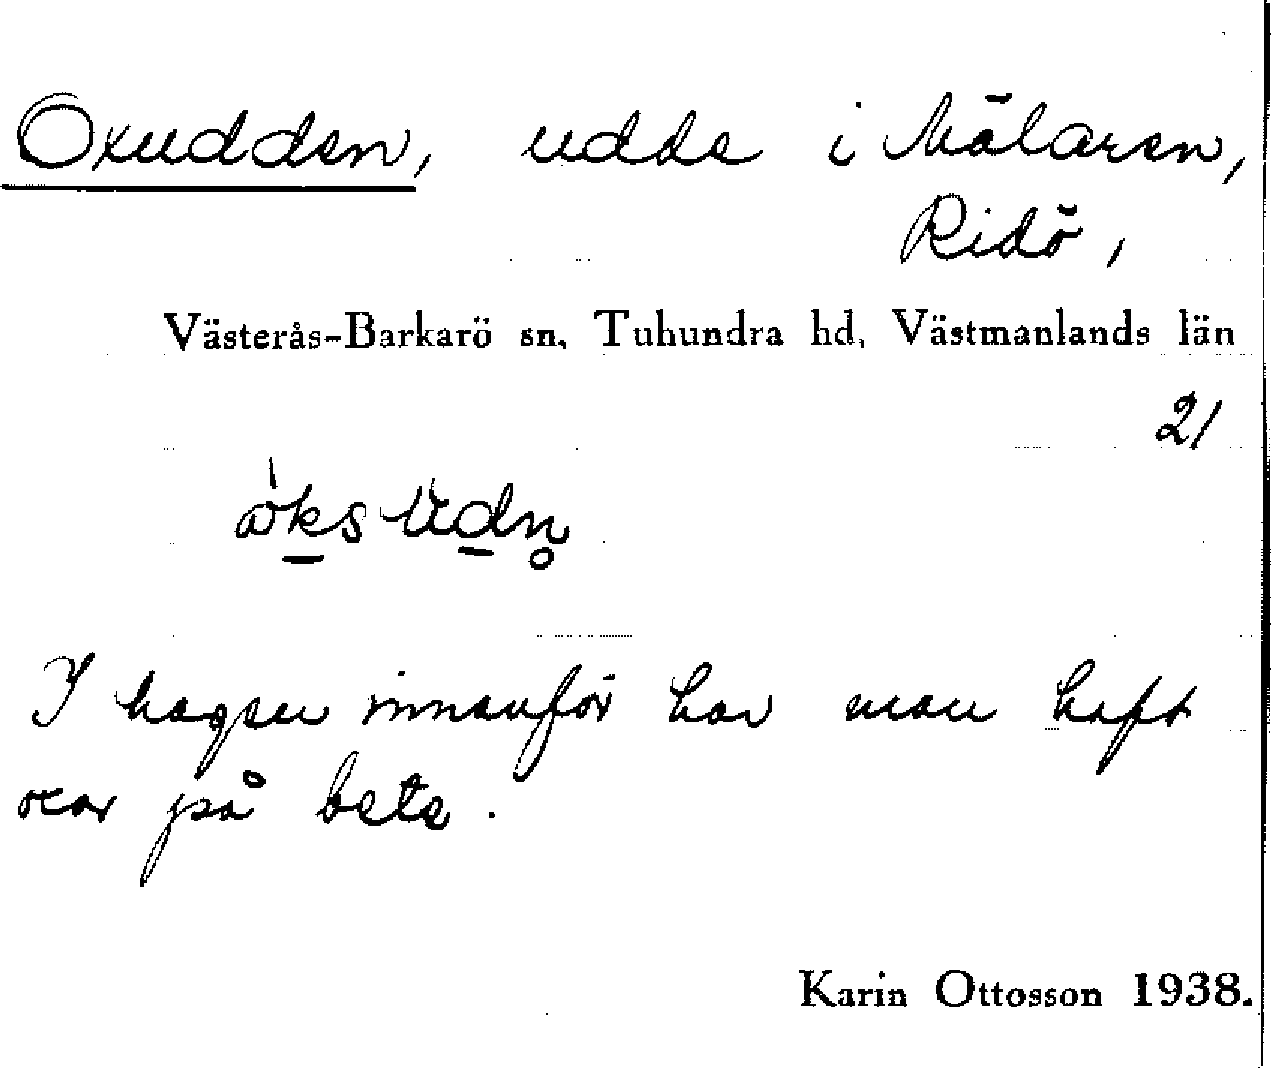 Oxudden, udde i Mälaren,
Ridö,
Västerås-Barkarö sn, Tuhundra hd, Västmanlands län
21
I hagen innanför har man haft
oxar på bete.
Karin Ottosson 1938.